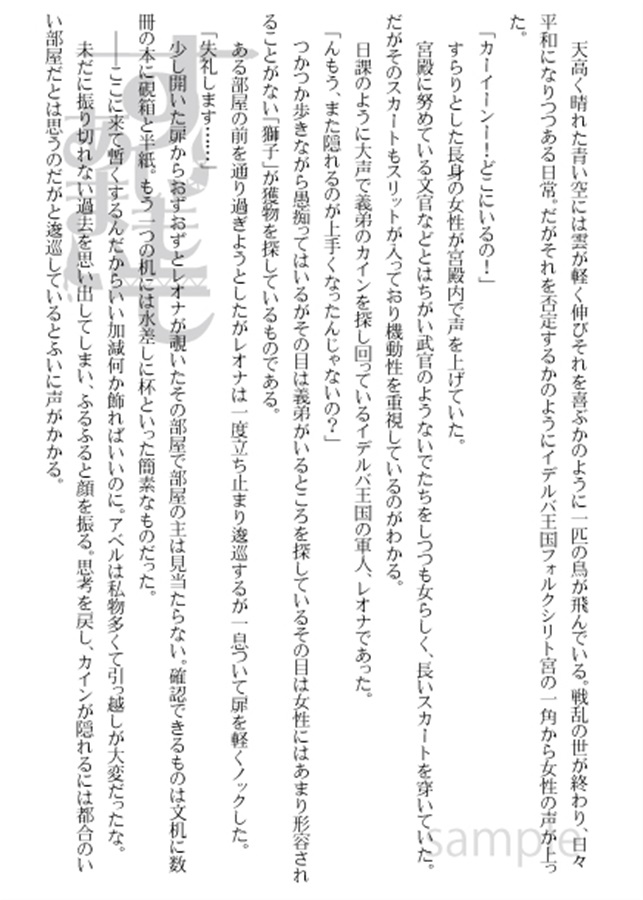 天高く晴れた青い空には雲が軽く伸びそれを喜ぶかのように一匹の鳥が飛んでいる。戦乱の世が終わり、日々
平和になりつつある日常。だがそれを否定するかのようにイデルバ王国フォルクシリト宮の一角から女性の声が上っ
た。
「カーイーンー!どこにいるの!」
すらりとした長身の女性が宮殿内で声を上げていた。
宮殿に努めている文官などとはちがい武官のようないでたちをしつつも女らしく、長いスカートを穿いていた。
だがそのスカートもスリットが入っており機動性を重視しているのがわかる。
日課のように大声で義弟のカインを探し回っているイデルバ王国の軍人、レオナであった。
「んもう、また隠れるのが上手くなったんじゃないの?」
つかつか歩きながら愚痴ってはいるがその目は義弟がいるところを探しているその目は女性にはあまり形容され
ることがない「獅子」が獲物を探しているものである。
ある部屋の前を通り過ぎようとしたがレオナは一度立ち止まり逡巡するが一息ついて扉を軽くノックした。
「失礼します……」
少し開いた扉からおずおずとレオナが覗いたその部屋で部屋の主は見当たらない。確認できるものは文机に数
冊の本に硯箱と半紙。もう一つの机には水差しに杯といった簡素なものだった。
――ここに来て暫くするんだからいい加減何か飾ればいいのに。アベルは私物多くて引っ越しが大変だったな。
未だに振り切れない過去を思い出してしまい、ふるふると顔を振る。思考を戻し、カインが隠れるには都合のい
い部屋だとは思うのだがと逡巡しているとふいに声がかかる。
sample